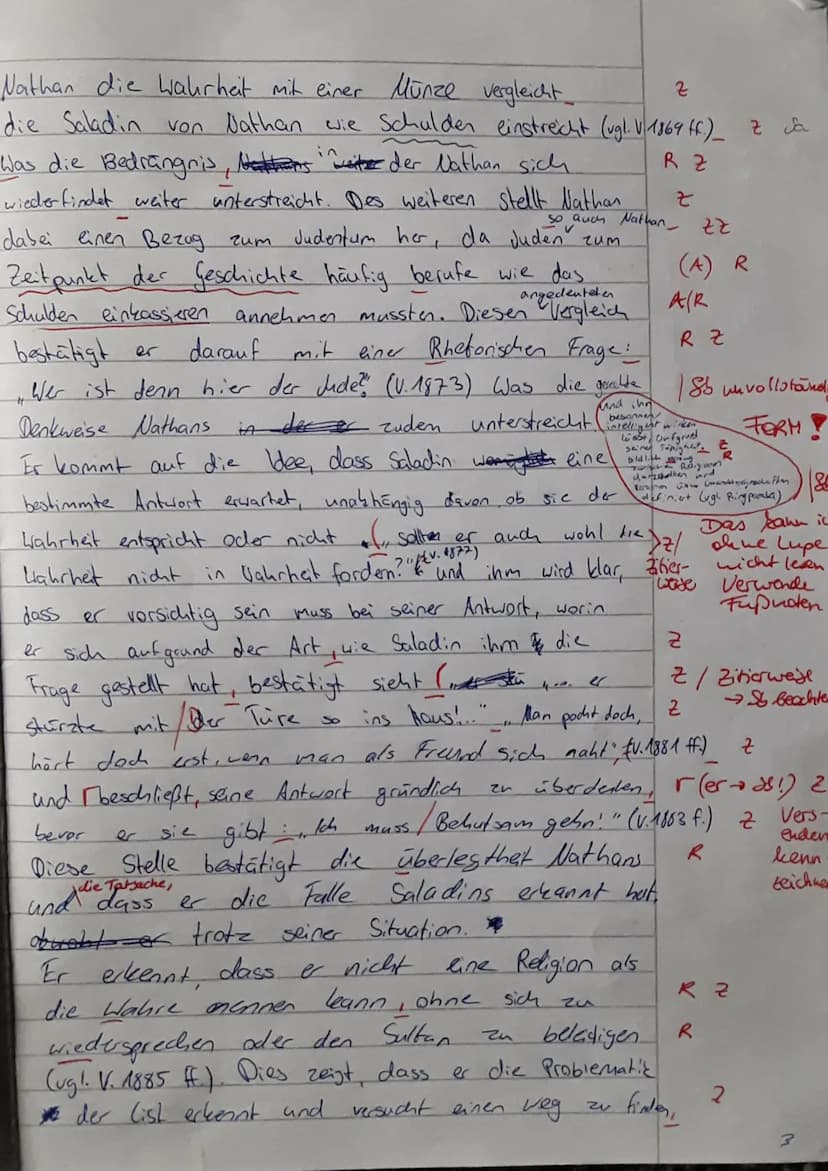 Nathan die Wahrheit mit einer Münze vergleicht Z
die Saladin von Nathan wie Schulden einstreicht (vgl. V 1869 ff.) Z
Was die Bedrängnis, in der Nathan sich R Z
wiederfindet weiter unterstreicht. Des weiteren stellt Nathan Z
so auch Nathan ZZ
dabei einen Bezug zum Judentum her, da Juden zum
Zeitpunkt der Geschichte häufig berufe wie das (A) R
angedeuteten
Schulden einkassieren annehmen mussten. Diesen Vergleich A/R
bestätigt er darauf mit einer Rhetorischen Frage: R Z
„Wer ist denn hier der Jude?" (V. 1873) Was die | Sb unvollständ
Denkweise Nathans zudem unterstreicht FORM!
und ihn
besonnen/
intelligent wirken
lässt, aufgrund
seiner Fähigkeit Z
R
Religion
darzustellen und
(vgl. Ringparabel)
Er kommt auf die Idee, dass Saladin eine
bestimmte Antwort erwartet, unabhängig davon, ob sie der | Sb
Wahrheit entspricht oder nicht. („ sollte er auch wohl die Z/
Zitier-
weise
Das kann ic
ohne Lupe
nicht lesen
Verwende
Fußnoten
(v. 1877)
Wahrheit nicht in Wahrheit fordern?" und ihm wird klar,
dass er vorsichtig sein muss bei seiner Antwort, worin
er sich aufgrund der Art, wie Saladin ihm die Z
Frage gestellt hat, bestätigt sieht („... er Z / Zitierweise
→ Sb beachte
stürzte mit / Der Türe so ins Haus!..." „Man pocht doch, Z
hört doch erst, wenn man als Freund sich naht", (V. 1881 ff.) Z
und beschließt, seine Antwort gründlich zu überdenken, Γ (er → Sb!) Z
bevor er sie gibt: „Ich muss / Behutsam gehn!" (V. 1883 f.) Z Vers-
enden
kenn
zeichne
Diese Stelle bestätigt die überlegtheit Nathans R
die Tatsache,
und dass er die Falle Saladins erkannt hat,
trotz seiner Situation. *
Er erkennt, dass er nicht eine Religion als
die Wahre nennen kann, ohne sich zu R Z
wiedersprechen oder den Sultan zu beleidigen R
(vgl. V. 1885 ff.). Dies zeigt, dass er die Problematik
* der List erkennt und versucht einen Weg zu finden, Z
3